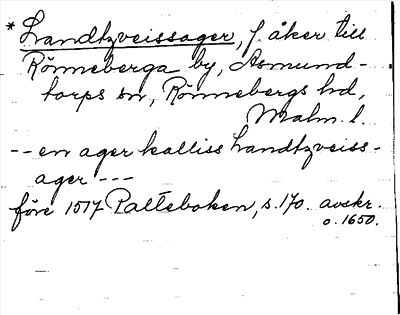 * Landtzveissager, f. åker till
Rönneberga by, Asmund-
torps sn, Rönnebergs hd,
Malm. l.
-- en ager kalliss Landtzveiss-
ager ---
före 1517 Palteboken, s. 170. avskr.
o. 1650.